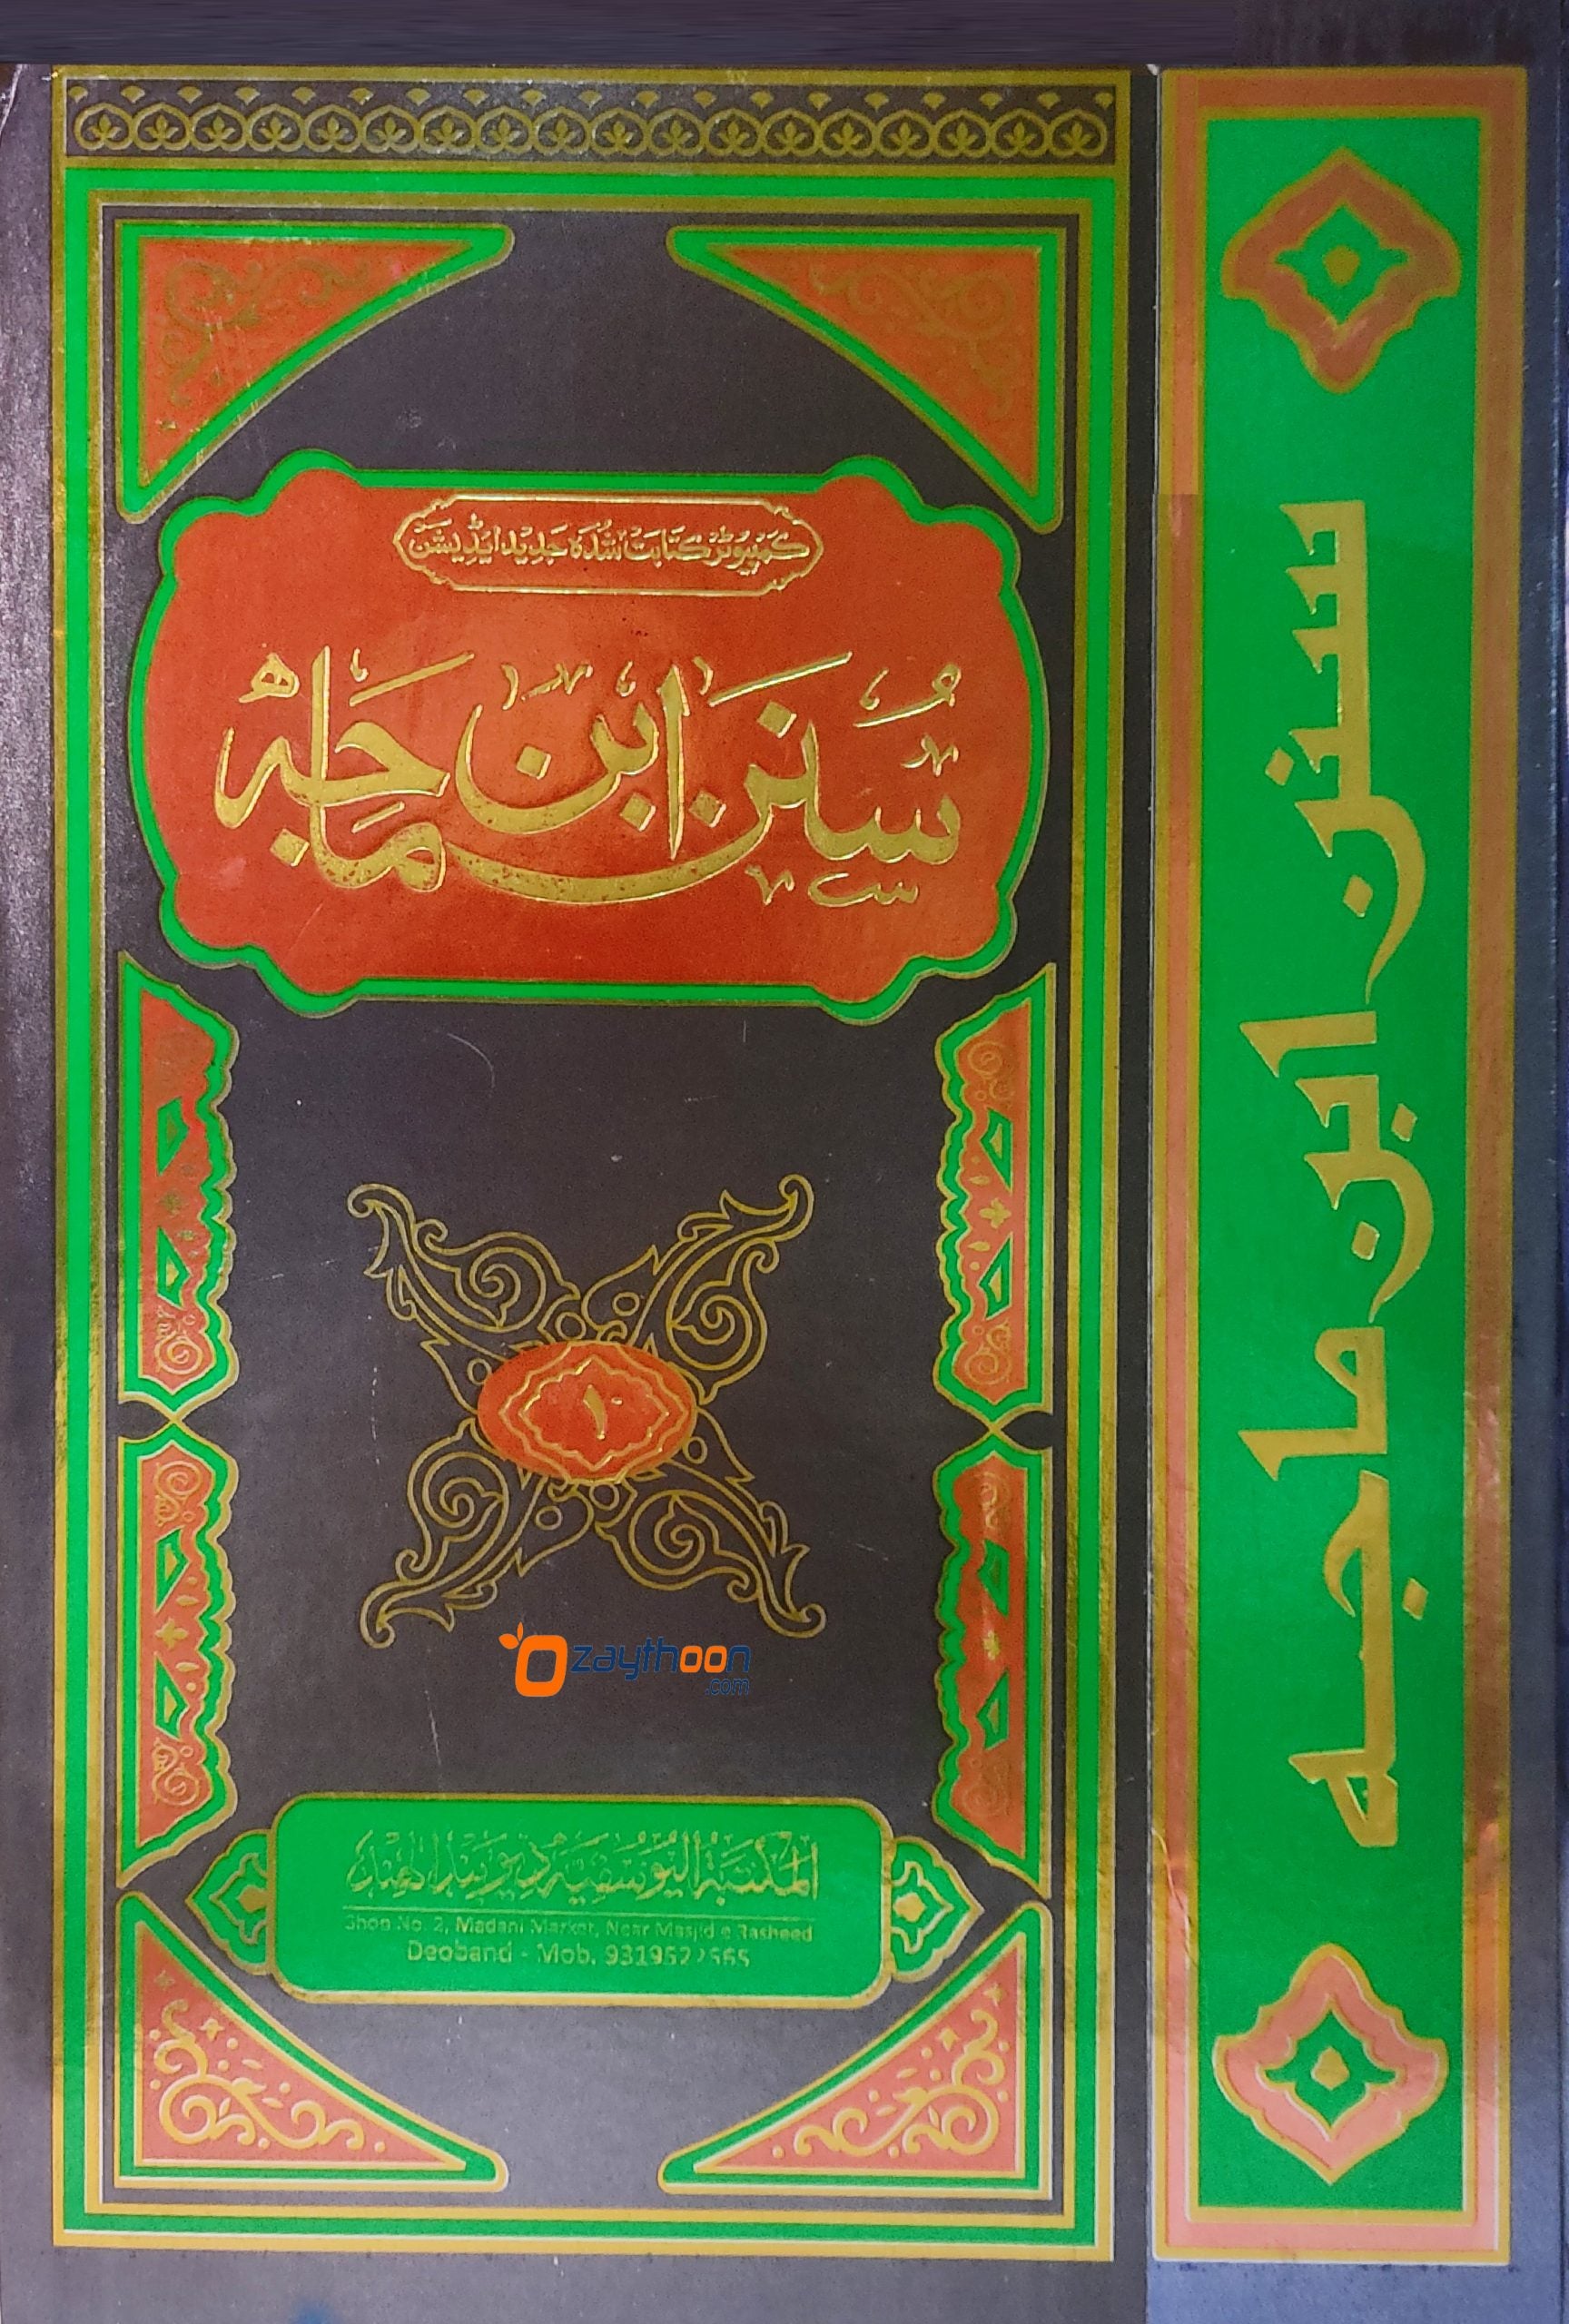 کمپیوٹر کتابت شدہ جدید ایڈیشن
سُنَن ابن مَاجَه
١
zaythoon
.com
المكتبة اليوسفية ديوبند الهند
Shop No. 2, Madani Market, Near Masjid e Rasheed
Deoband - Mob.
سنن ابن ماجه